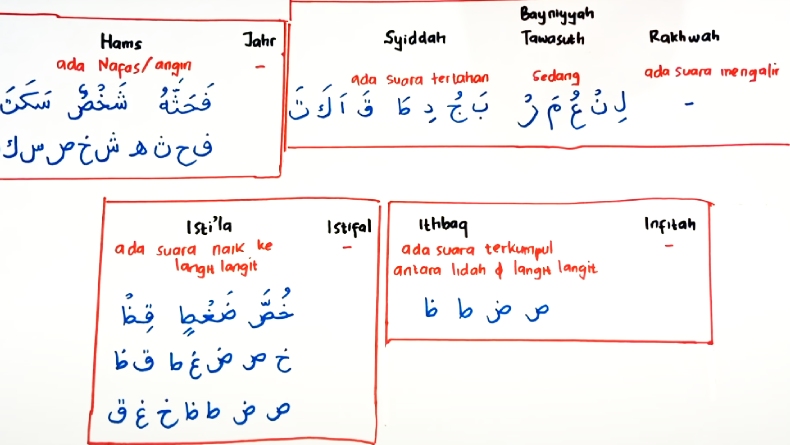 Hams Jahr
ada Nafas/angin -
فَحَثَّهُ شَخْصٌ سَكَتَ
ف ح ث ه ش خ ص س ك
Syiddah Bayniyyah Tawasuth Rakhwah
ada suara tertahan Sedang ada suara mengalir
بَ جُ دِ طَ قَ اَ كَ تَ
لِ نْ عُ مَ رْ
-
Isti'la Istifal
ada suara naik ke -
langit langit
خُصَّ ضَغْطٍ قِظْ
خ ص ض غ ط ق ظ
ص ض ط ظ خ غ ق
Ithbaq Infitah
ada suara terkumpul -
antara lidah & langit langit
ص ض ط ظ